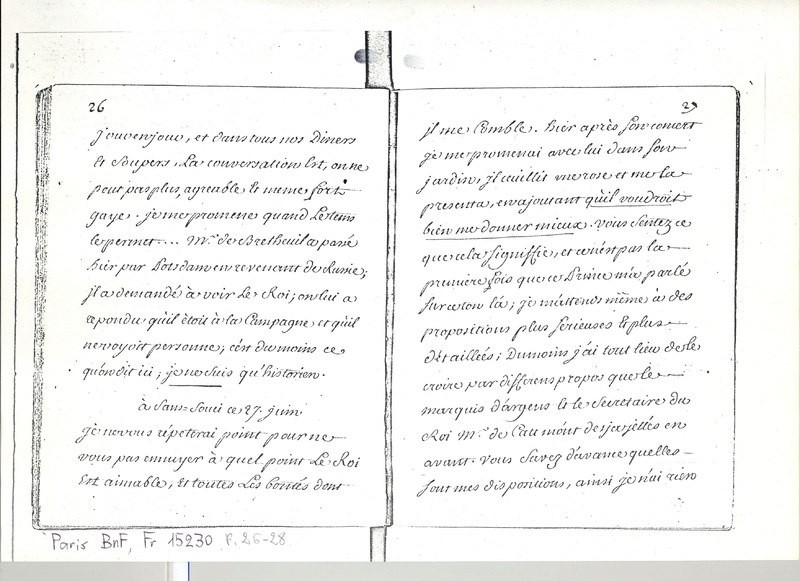 26
jouvenjour, et dans tous nos Diners
et Soupers. La conversation Est, on ne
peut pas plus, agreable et meme fort
gaye. je me promene quand Le tems
le permet... Mr. de Bretheuil a passé
hier par Potsdam en revenant de Russie;
jl a demandé à voir Le Roi; on lui a
repondu qu'il étoit à la Campagne et qu'il
ne voyoit personne; c'est du moins ce
qu'on dit ici; je ne suis qu'historien.
à Sans-Souci ce 27. juin
je ne vous répeterai point pour ne
vous pas ennuyer à quel point Le Roi
Est aimable, Et toutes Les bontés dont
27
jl me Comble. hier après son concert
je me promenai avec lui dans son
jardin, jl cueillit une rose et me la
presenta, en ajoutant qu'il voudroit
bien me donner mieux. vous Sentez ce
que cela signiffie, et ce n'est pas la
premiere fois que ce Prince m'a parlé
sur ce ton là; je m'attends même à des
propositions plus serieuses et plus
détaillées; Du moins j'ai tout lieu de le
croire par differens propos que le
marquis d'argens et le Secretaire du
Roi Mr. de Catt m'ont desja jettés en
avant. vous Savez d'avance quelles
sont mes dispositions, ainsi je n'ai rien
Paris BnF, Fr 15230 f. 26-28